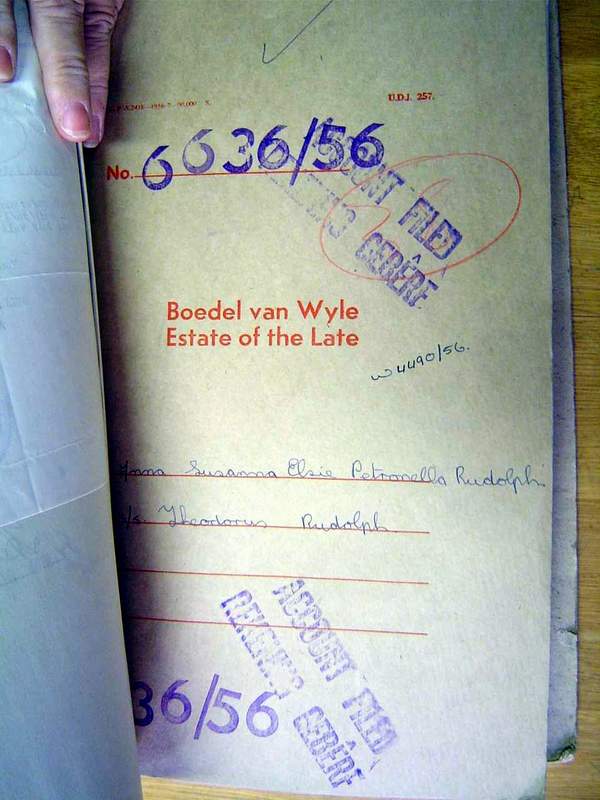 U.D.J. 257.
No. 6636/56
ACCOUNT FILED
GEBÊRE
Boedel van Wyle
Estate of the Late
W4490/56.
Anna Susanna Elsie Petronella Rudolph
Theodorus Rudolph
ACCOUNT FILED
REKENING GEBÊRE
36/56